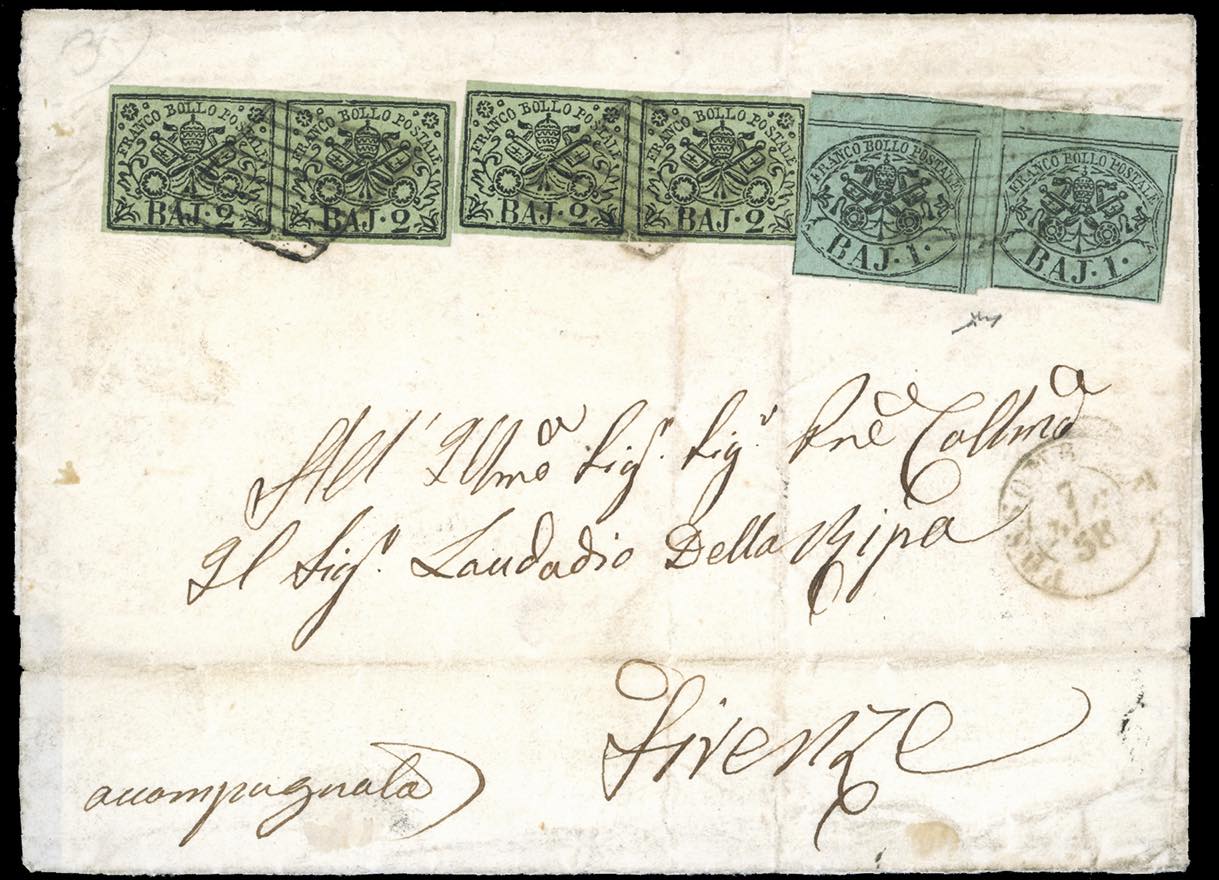 FRANCO BOLLO POSTALE
BAJ·2
FRANCO BOLLO POSTALE
BAJ·2
FRANCO BOLLO POSTALE
BAJ·2
FRANCO BOLLO POSTALE
BAJ·2
FRANCO BOLLO POSTALE
BAJ·1·
FRANCO BOLLO POSTALE
BAJ·1·
All' Illmo Sigr. Sigr. Pne Collmo
Il Sigr. Laudadio Della Ripa
Firenze
accompagnata
7
58